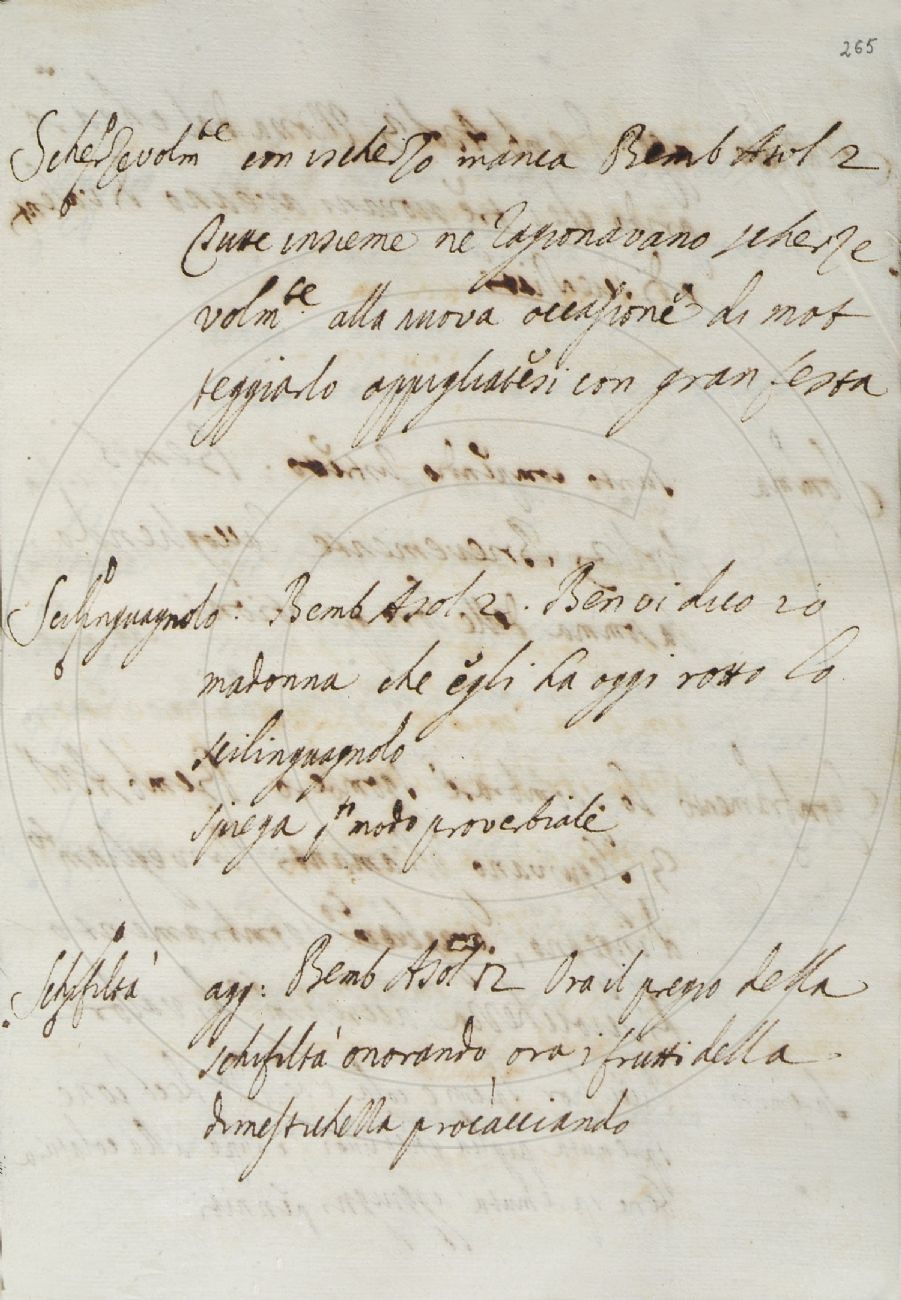 265
Scherzevolm.te con ischerzo manca Bemb Asol 2
Tutte insieme ne ragionavano scherze
volm.te alla nuova occasione di mot
teggiarlo appigliatesi con gran festa
Scilinguagnolo. Bemb Asol 2. Ben vi dico io
madonna che egli ha oggi rotto lo
scilinguagnolo
spiega modo proverbiale
Schifiltà agg: Bemb Asol 2 Ora il pregio della
schifiltà onorando, ora i frutti della
dimestichezza procacciando